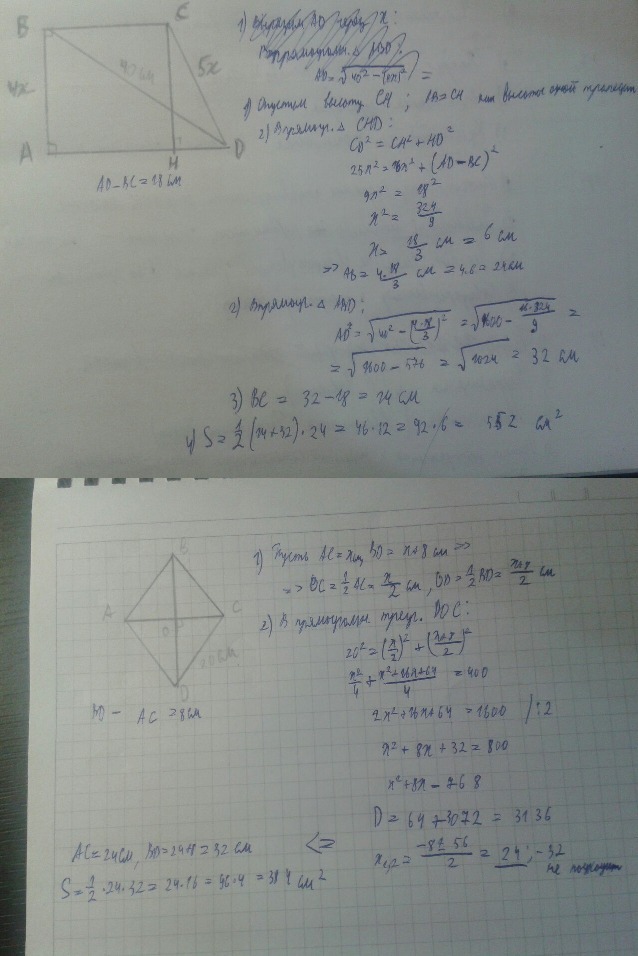 B
C
4x
40 см
5x
A
H
D
AD-BC=18 см
1) Выразим AD через x:
В прямоугольн. △ ABD:
AD=√40²-(4x)² =
1) Опустим высоту CH; AB=CH как высоты одной трапеции
2) В прямоуг. △ CHD:
CD²=CH²+HD²
25x²=16x²+(AD-BC)²
9x²=18²
x²=324/9
x=18/3 см=6 см
=> AB=4·18/3 см=4·6=24 см
2) В прямоуг. △ ABD:
AD²=√40²-(4·18/3)² =√1600-16·324/9 =
=√1600-576 =√1024 =32 см
3) BC=32-18=14 см
4) S=1/2(14+32)·24=46·12=92·6=552 см²
B
A
O
C
20 см
D
BD - AC=8 см
1) Пусть AC=x см, BD=x+8 см =>
=> OC=1/2 AC=x/2 см, OD=1/2 BD=x+8/2 см
2) В прямоугольн треуг. DOC:
20²=(x/2)²+(x+8/2)²
x²/4+x²+16x+64/4=400
2x²+16x+64=1600 /:2
x²+8x+32=800
x²+8x-768
D=64+3072=3136
x₁,₂=-8±56/2=24; -32
не подходит
<=
AC=24 см, BD=24+8=32 см
S=1/2·24·32=24·16=96·4=384 см²